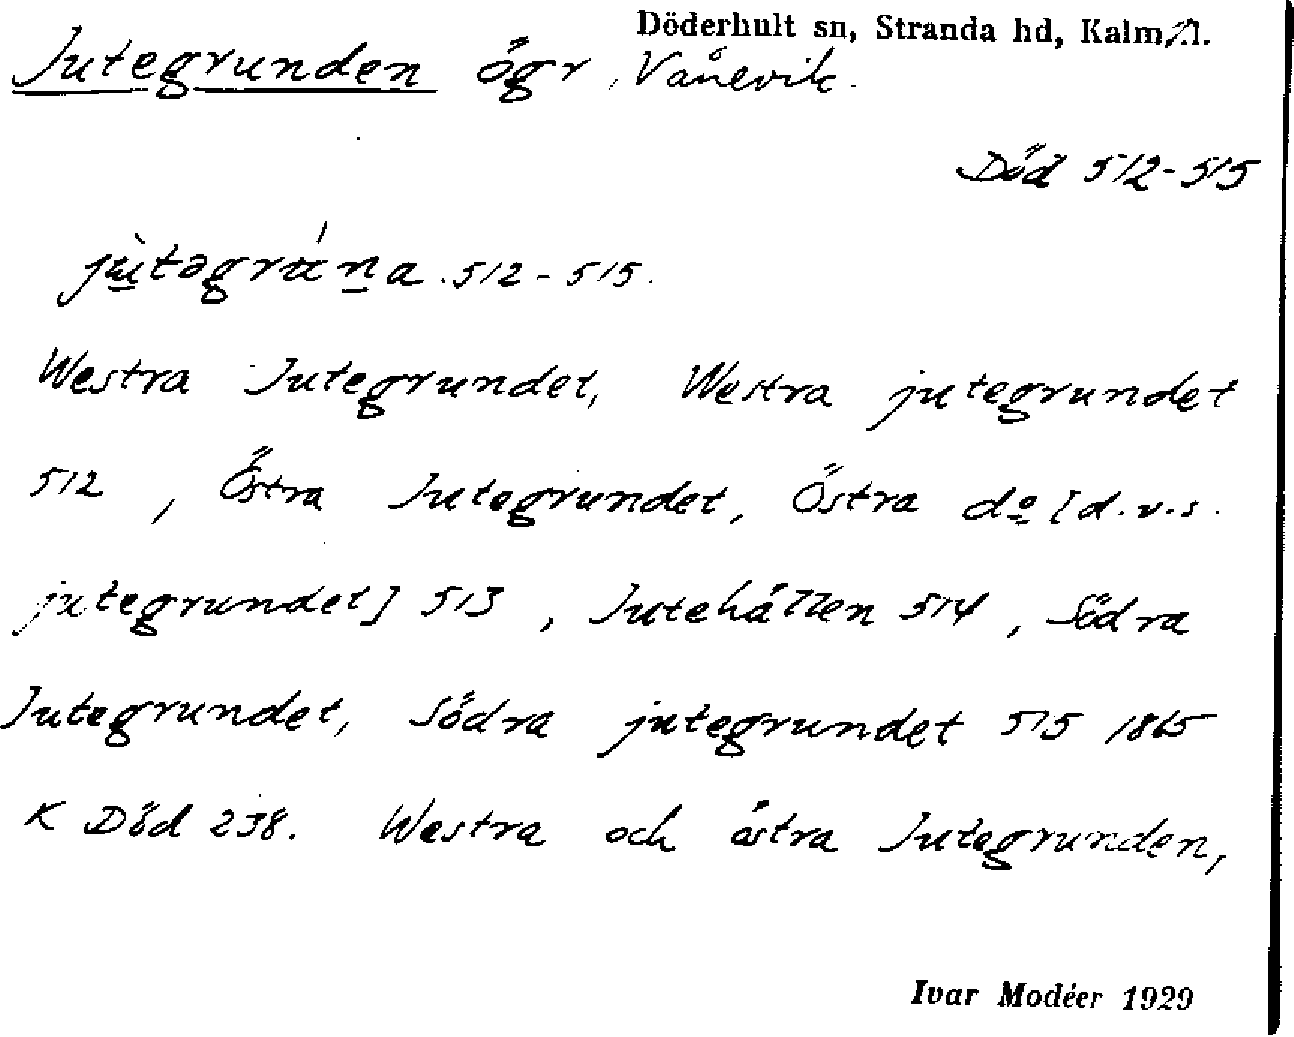 Döderhult sn, Stranda hd, Kalm. l.
Jutegrunden ögr, Vånevik.
Död 512-515
jùtəgrána. 512-515.
Westra Jutegrundet, Westra jutegrundet
512, Östra Jutegrundet, Östra do [d.v.s.
jutegrundet] 513, Jutehällen 514, Södra
Jutegrundet, Södra jutegrundet 515 1865
K Död 238. Westra och östra Jutegrunden,
Ivar Modéer 1929